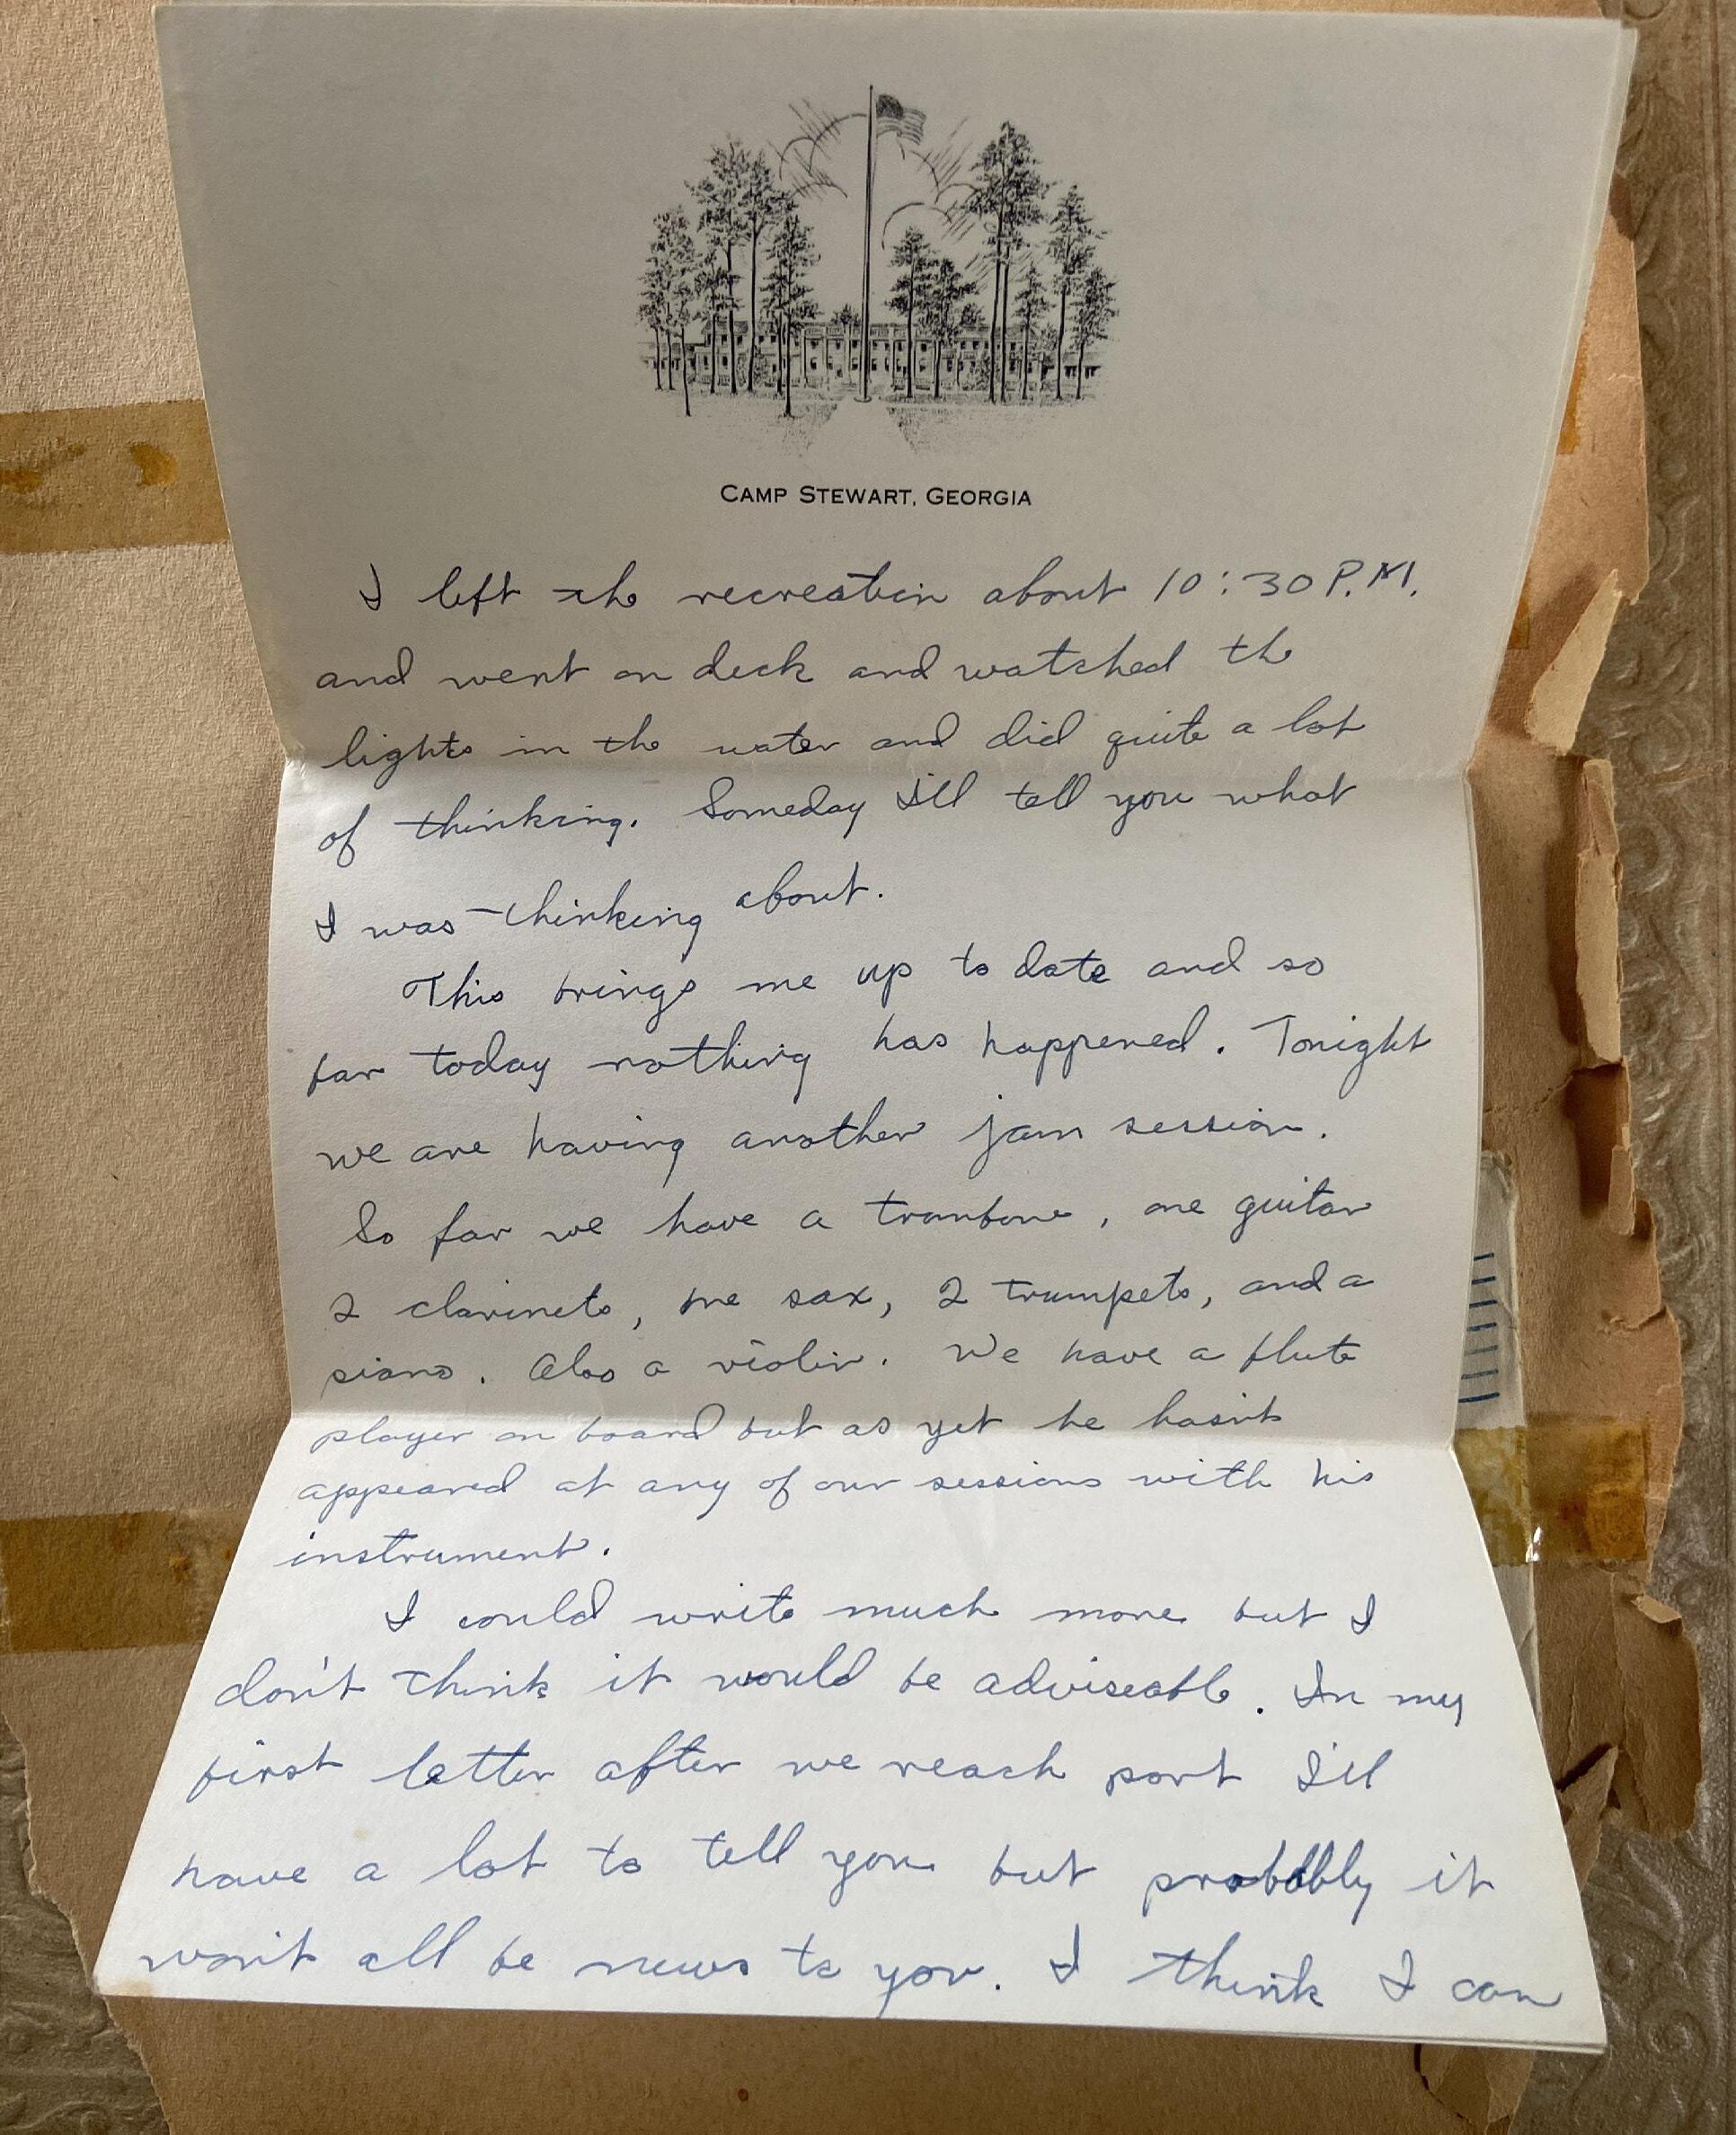 CAMP STEWART, GEORGIA
I left the recreation about 10:30 P.M.
and went on deck and watched the
lights in the water and did quite a lot
of thinking. Someday I'll tell you what
I was thinking about.
This brings me up to date and so
far today nothing has happened. Tonight
we are having another jam session.
So far we have a trombone, one guitar
2 clarinets, one sax, 2 trumpets, and a
piano. Also a violin. We have a flute
player on board but as yet he hasn't
appeared at any of our sessions with his
instrument.
I could write much more but I
don't think it would be adviseable. In my
first letter after we reach port I'll
have a lot to tell you but probably it
won't all be news to you. I think I can